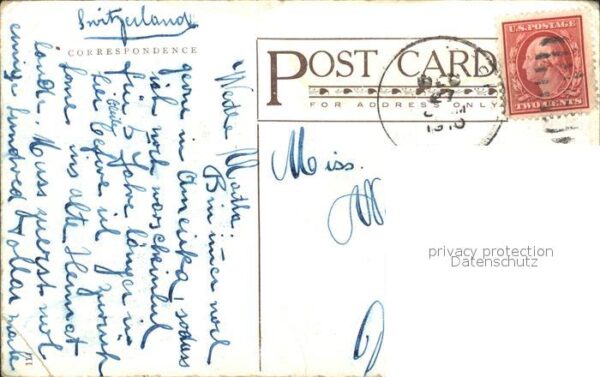 Switzerland
CORRESPONDENCE
POST CARD
FOR ADDRESS ONLY
U.S. POSTAGE
TWO CENTS
1910
Werthe Martha:
Bin immer noch
gerne in Amerika, sodass
ich noch warscheinlich
für 5 Jahre länger in
hier bleibe, ich zurück
ins alte Heimat
lande. Muss zuerst noch
einige hundred Dollar mach
Miss.
M.
privacy protection
Datenschutz